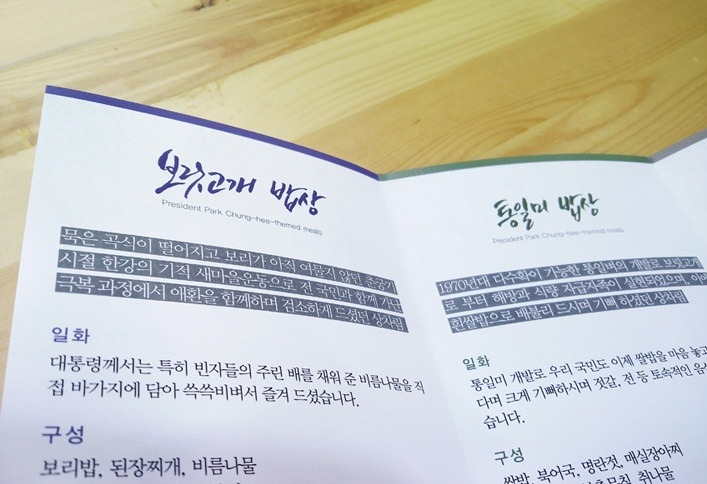 보릿고개 밥상
President Park Chung-hee-themed meals
묵은 곡식이 떨어지고 보리가 아직 여물지 않던 춘궁기
시절 한강의 기적 새마을운동으로 전 국민과 함께 가난
극복 과정에서 애환을 함께하며 검소하게 드셨던 상차림
일화
대통령께서는 특히 빈자들의 주린 배를 채워 준 비름나물을 직
접 바가지에 담아 쓱쓱비벼서 즐겨 드셨습니다.
구성
보리밥, 된장찌개, 비름나물
통일미 밥상
President Park Chung-hee-themed meals
1970년대 다수확이 가능한 통일벼의 개발로 보릿고개
로 부터 해방과 식량 자급자족이 실현되었으며 이에
흰쌀밥으로 배불리 드시며 기뻐 하셨던 상차림
일화
통일미 개발로 우리 국민도 이제 쌀밥을 마음 놓고
다며 크게 기뻐하시며 젓갈, 전 등 토속적인 음식
습니다.
구성
쌀밥, 북어국, 명란젓, 매실장아찌
취나물